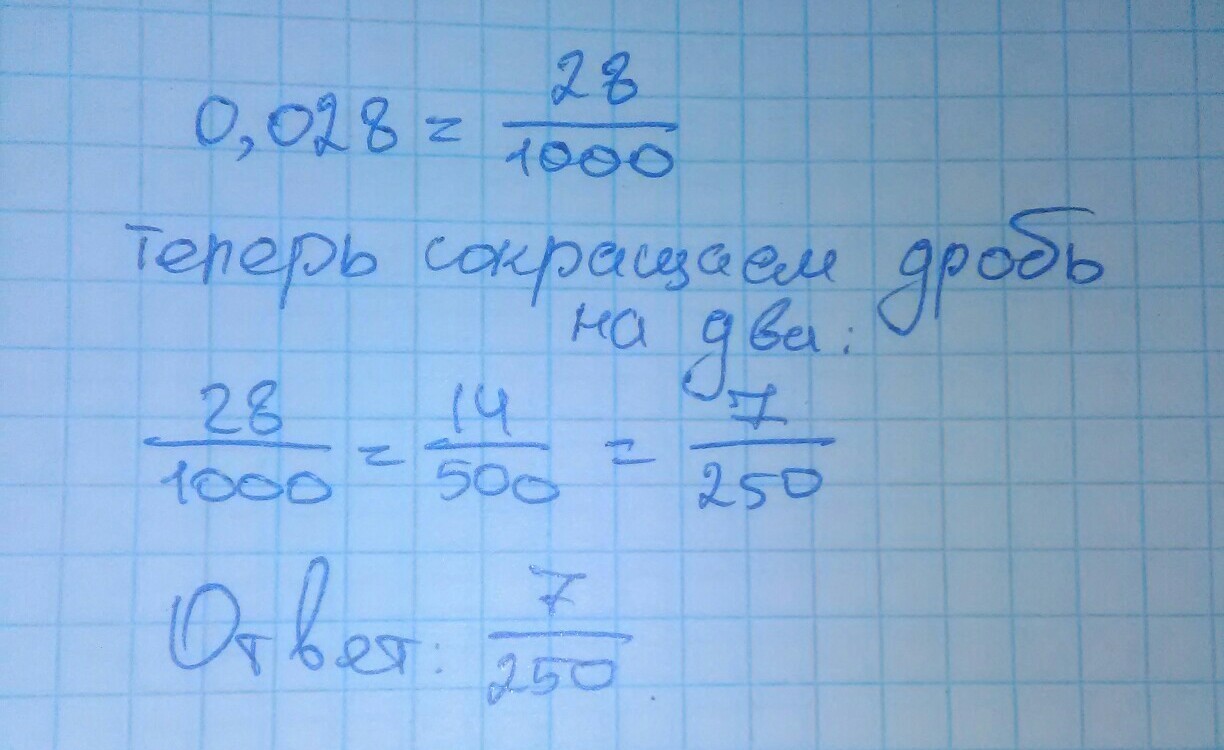 0,028 = 28/1000
теперь сокращаем дробь
на два:
28/1000 = 14/500 = 7/250
Ответ: 7/250